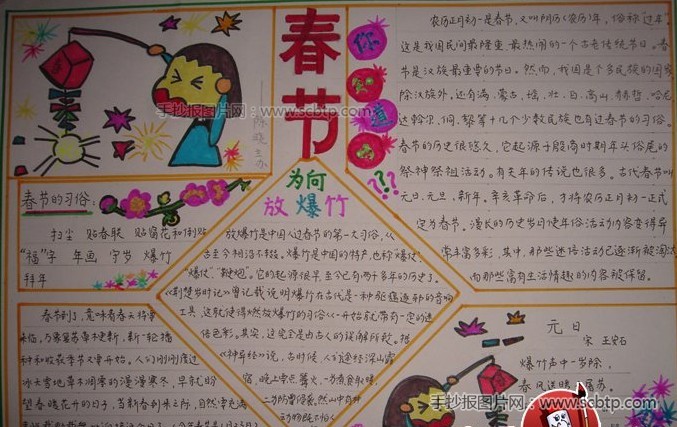 春节
手抄报图片网：www.scbtp.com
你
知
道
???
农历正月初一是春节，又叫阴历(农历)年，俗称“过年”
这是我国民间最隆重、最热闹的一个古老传统节日。春
节是汉族最重要的节日。然而，我国是个多民族的国家
除汉族外，还有满、蒙古、瑶、壮、白、高山、赫哲、哈尼
达斡尔、侗、黎等十几个少数民族也有过春节的习俗。
春节的历史很悠久，它起源于殷商时期年头岁尾的
祭神祭祖活动。有关年的传说也很多。古代春节叫
元日、元旦、新年。辛亥革命后，才将农历正月初一正式
定为春节。漫长的历史岁月使年俗活动内容变得异
常丰富多彩，其中，那些迷信活动已逐渐被淘汰
而那些富有生活情趣的内容被保留。
春节的习俗：
扫尘 贴春联 贴窗花和倒贴
“福”字 年画 守岁 爆竹
拜年
为何
放爆竹
放爆竹是中国人过春节的第一大习俗，从
古至今利治不轻。爆竹是中国的特产，也称“爆仗”、
“炮仗”、“鞭炮”。它的起源很早，至今已有两千多年的历史了。
《荆楚岁时记》曾记载说明爆竹在古代是一种驱瘟逐邪的音响
工具，这就使得燃放爆竹的习俗从一开始就带有一定的迷
信色彩。其实，这完全是由古人的误解所致。据
《神异经》说，古时候，人们途经深山露
宿，晚上要点篝火，一为煮食取暖，
二为防
春节到了，意味着春天将要
来临，万象复苏草木更新，新一轮播
种和收获季节又要开始。人们刚刚度过
冰天雪地草木凋零的漫漫寒冬，早就盼
望春暖花开的日子，当新春到来之际，自然要充满
元日
宋 王安石
爆竹声中一岁除，
春风送暖 屠苏。
手抄报图片网：www.scbtp.com